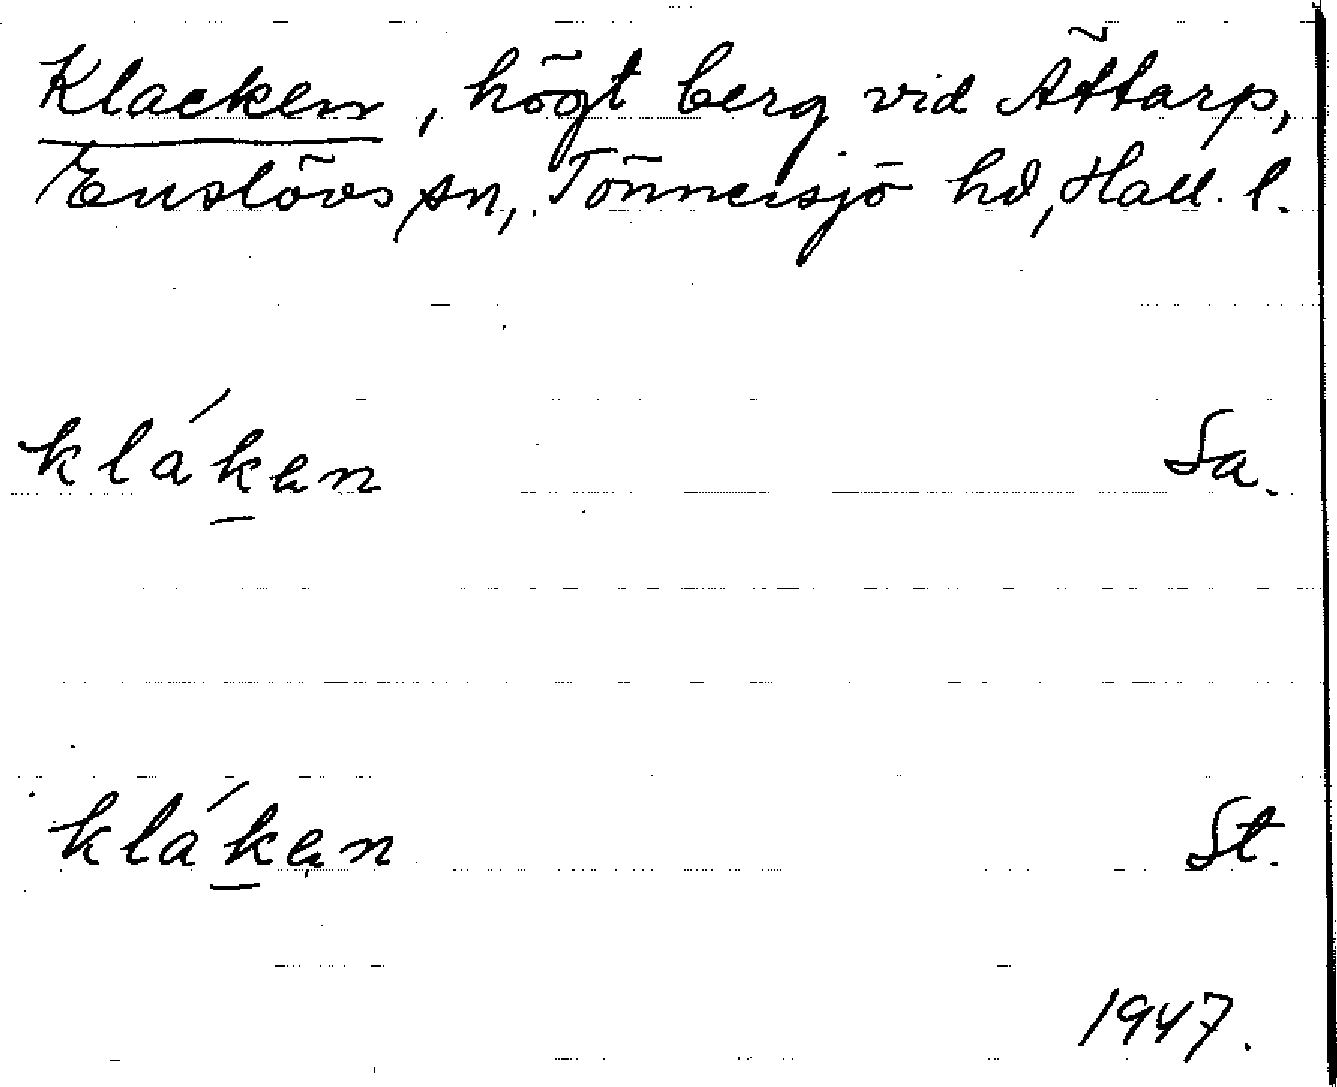 Klacken, högt berg vid Ättarp,
Enslövs sn, Tönnersjö hd, Hall. l.
klákan Sa.
klákan St.
1947.